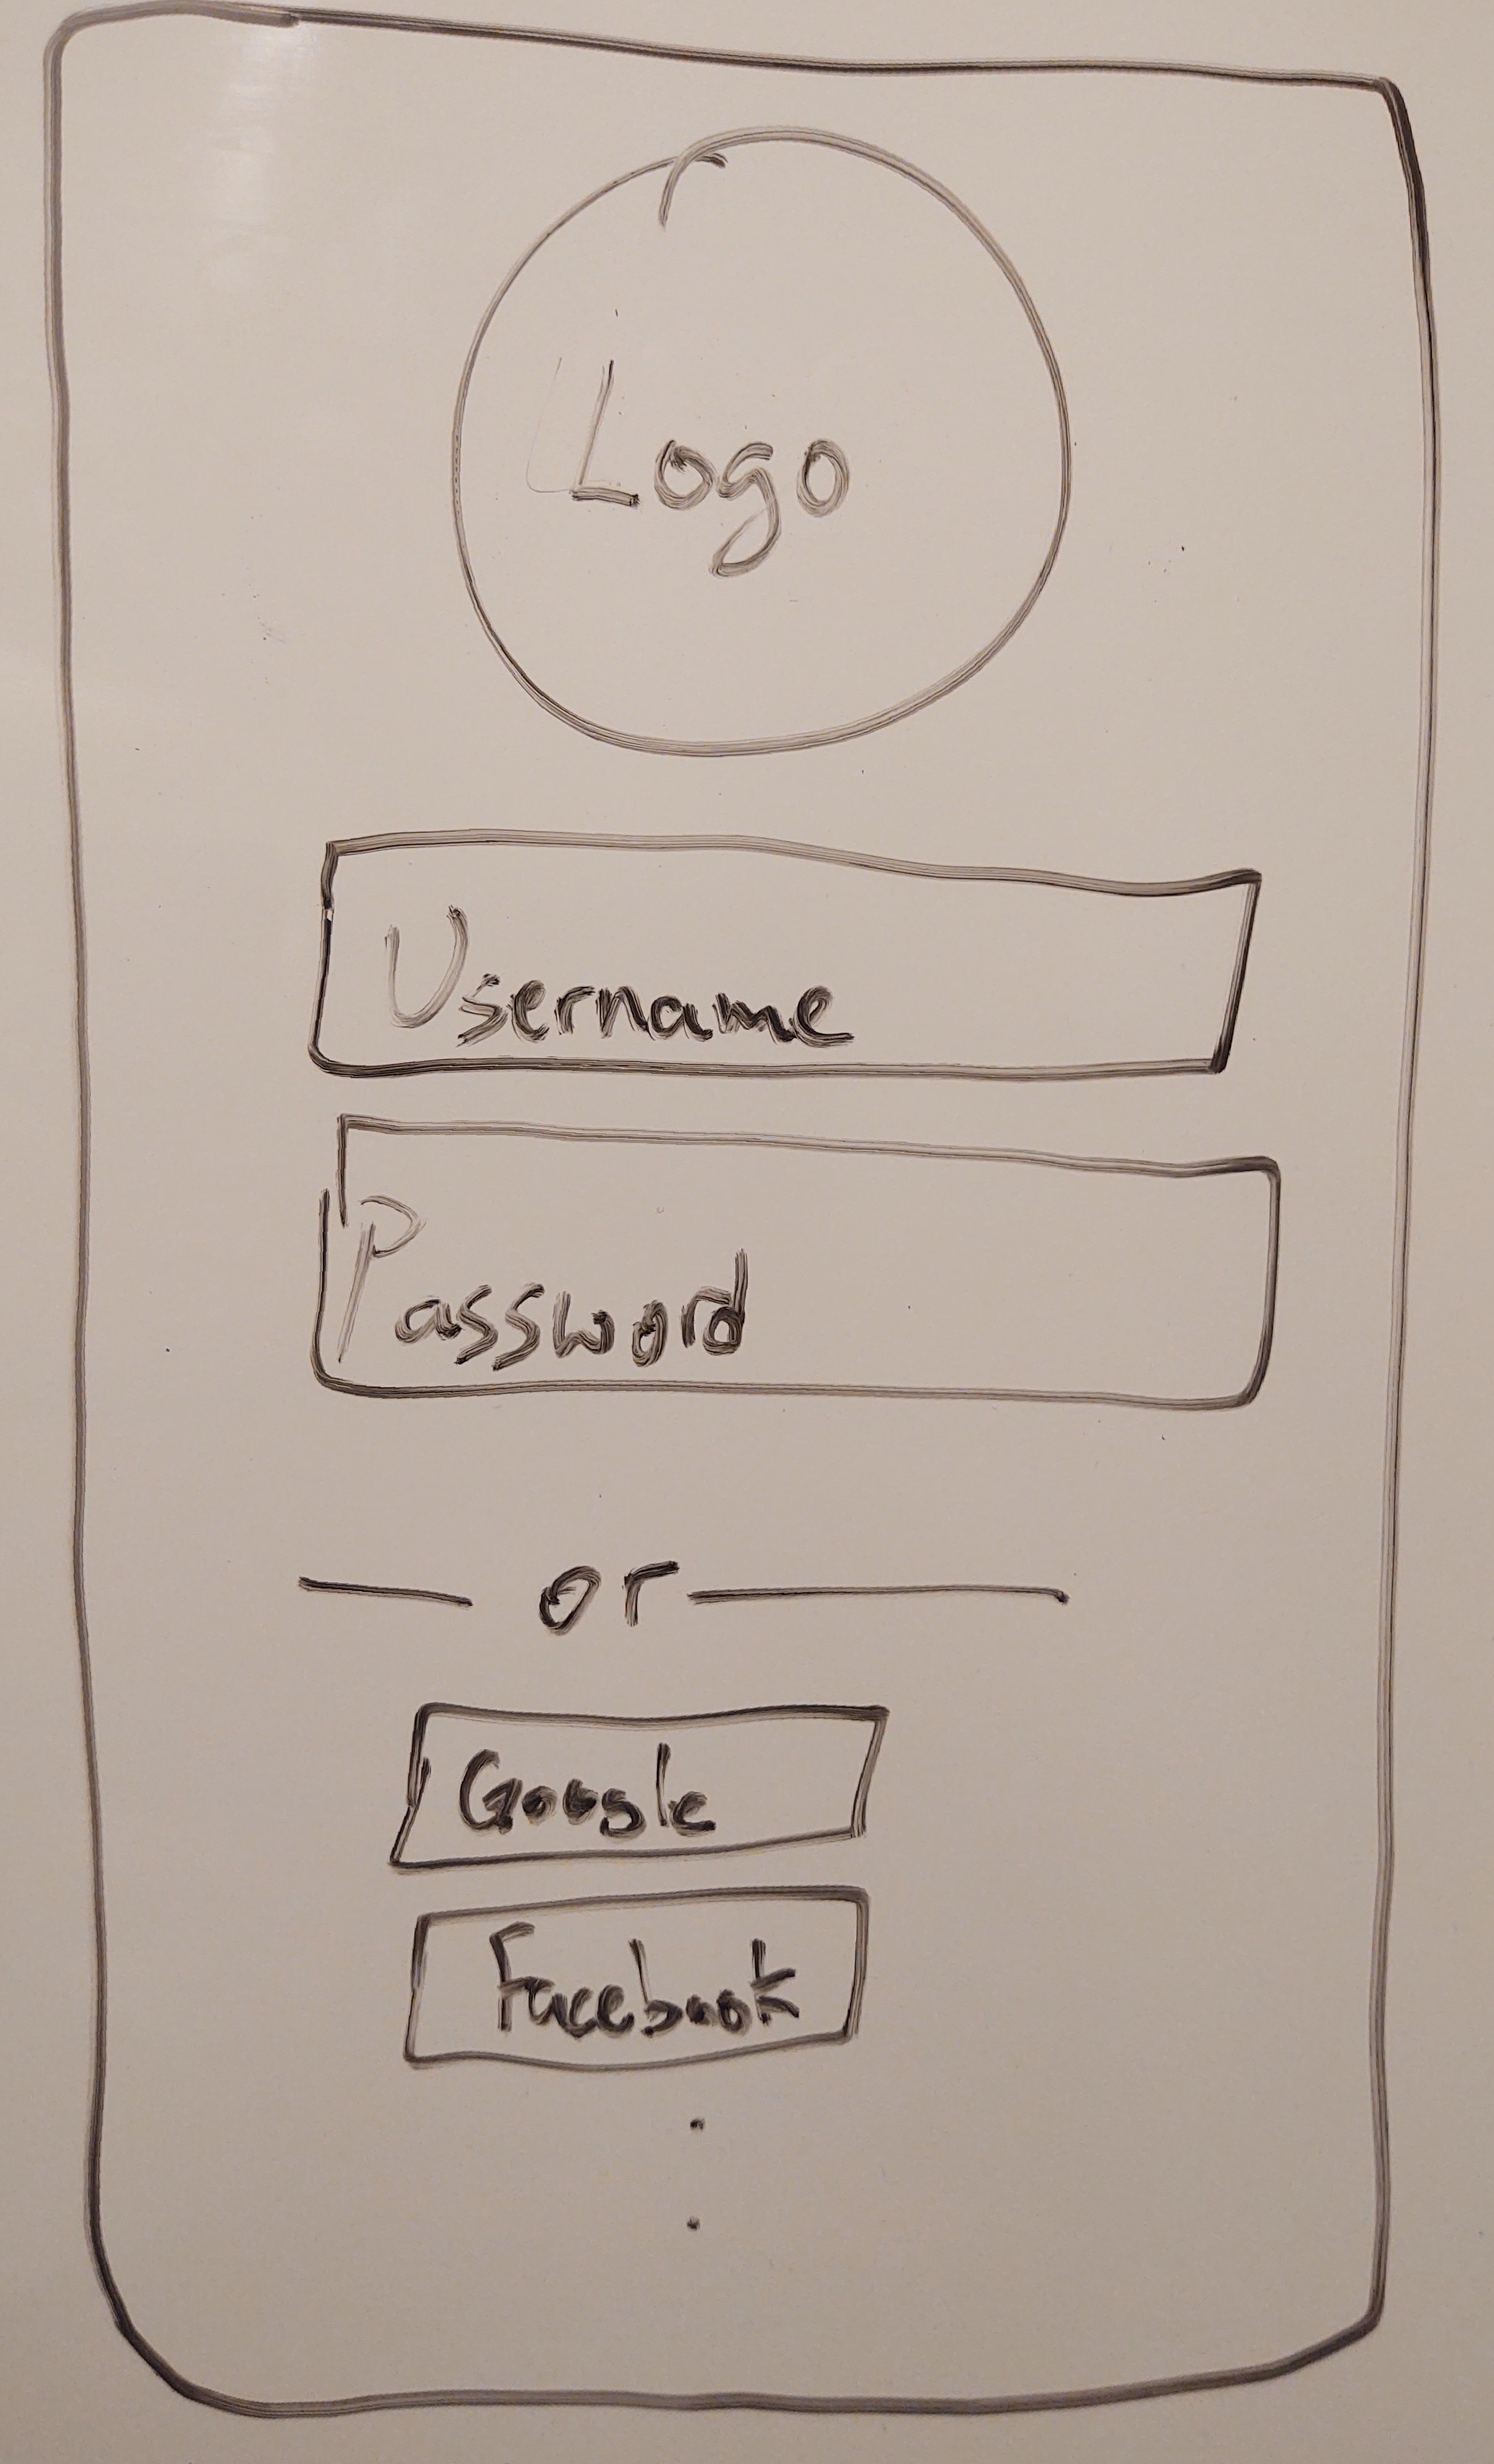 Logo
Username
Password
or
Google
Facebook